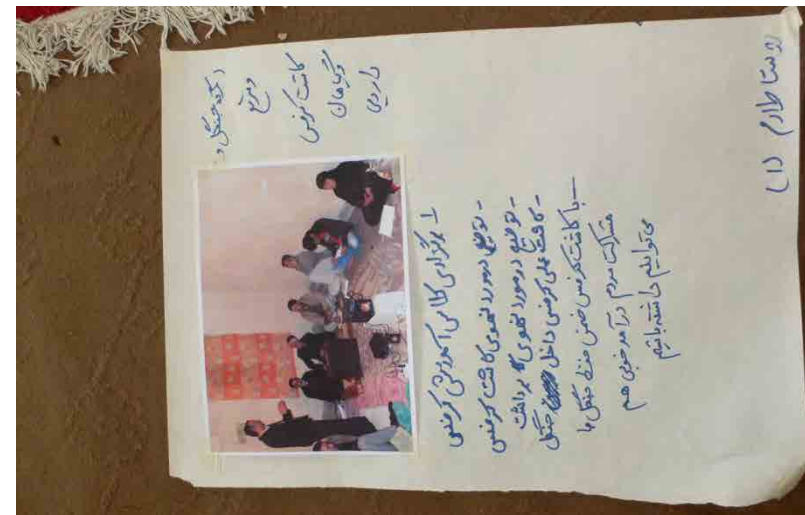 روستا طارم (۱)
جنگل و
ومرتع
کاشت کرفس
گیاهان
دارویی
۱ برگزاری کلاس آموزشی کرفس
- توضیح درمورد نحوی کاشت کرفس
- توضیح درمورد نحوی برداشت
- کاشت عملی کرفس داخل جنگل
- با کاشت کرفس ضمن حفظ جنگل با
مشارکت مردم درآمد خوبی هم
می توانیم داشته باشیم